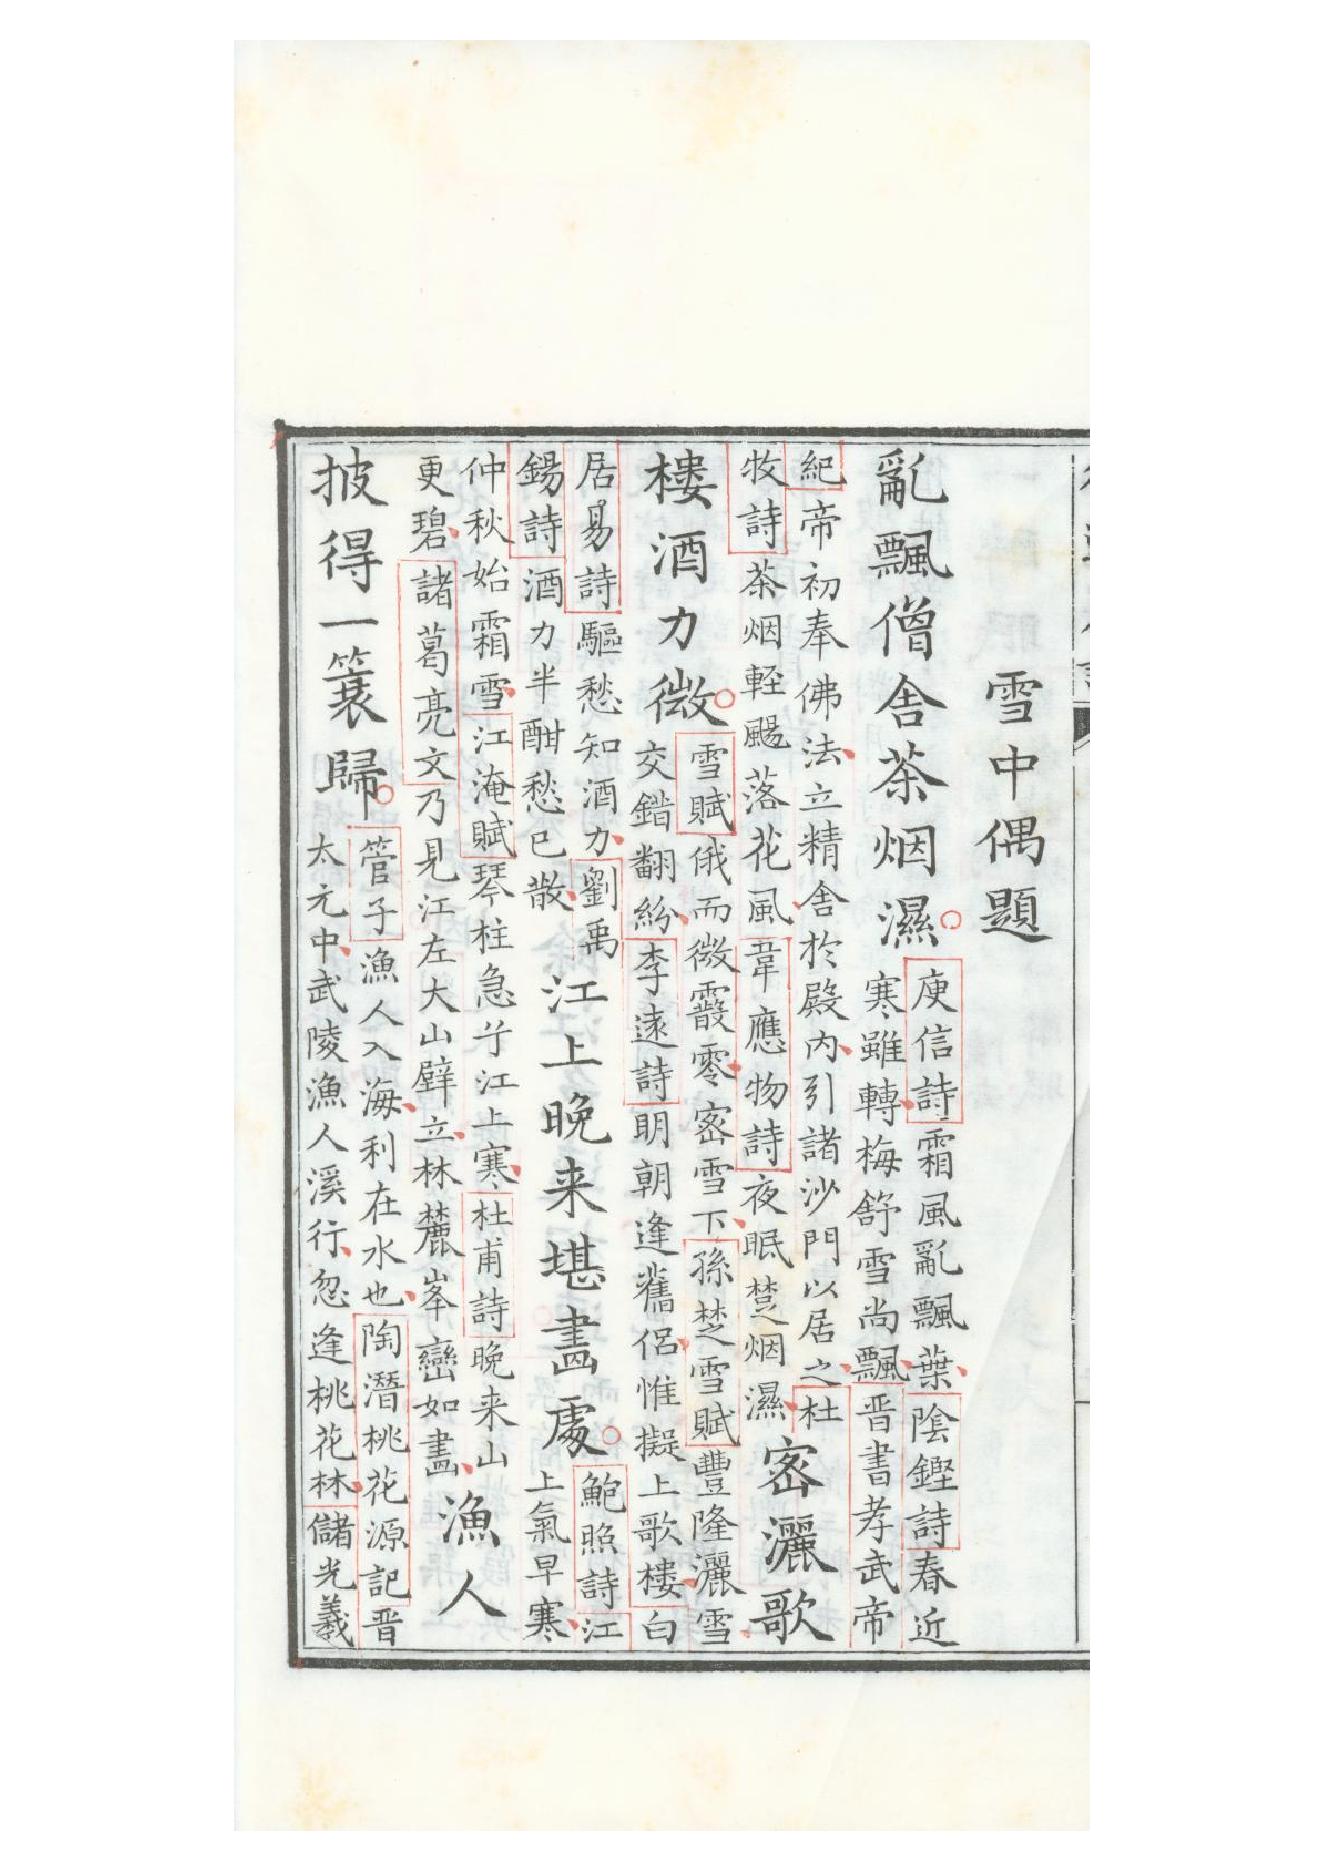 雪中偶題
亂飄僧舍茶烟濕
庾信詩霜風亂飄葉陰鏗詩春近
寒雖轉梅舒雪尚飄晋書孝武帝
紀帝初奉佛法立精舍於殿内引諸沙門以居之杜
牧詩茶烟輕颺落花風韋應物詩夜眠楚烟濕
密灑歌
樓酒力微
雪賦俄而微霰零密雪下孫楚雪賦豐隆灑雪
交錯翻紛李遠詩明朝逢舊侶惟擬上歌樓白
居易詩驅愁知酒力劉禹
錫詩酒力半酣愁已散
江上晚来堪畵處
鮑照詩江
上氣早寒
仲秋始霜雪江淹賦琴柱急兮江上寒杜甫詩晚来山
更碧諸葛亮文乃見江左大山壁立林麓峯巒如畵
漁人
披得一簑歸
管子漁人入海利在水也陶潛桃花源記晋
太元中武陵漁人溪行忽逢桃花林儲光羲